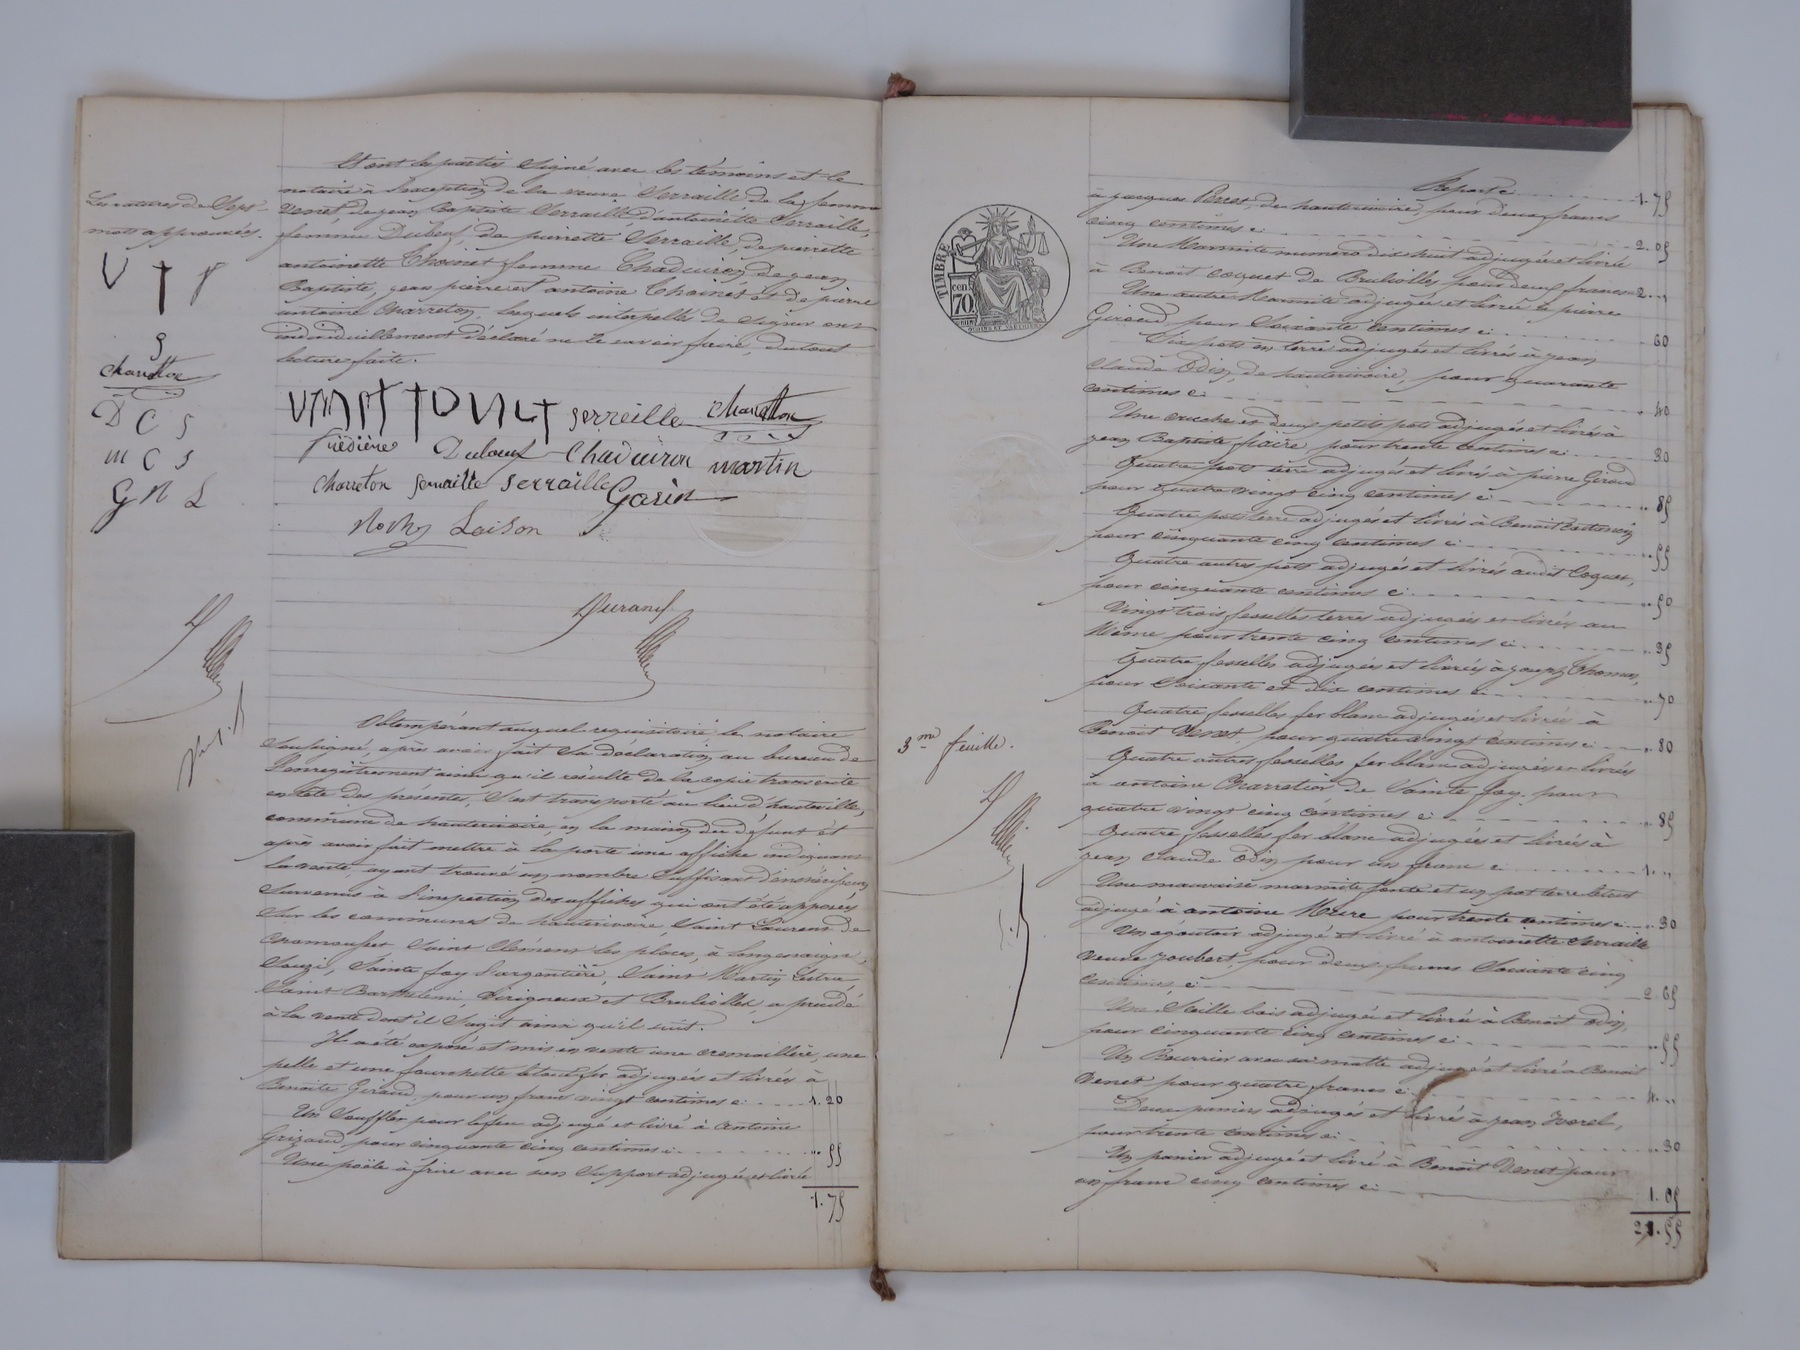 Et ont les parties signé avec les témoins et le
notaire à l'exception de la veuve Serraille de la femme
Venet, de jean Baptiste Serraille, d'antoinette Serraille,
femme Dubeuf, de pierrette Serraille, de pierrette
antoinette Thoinet femme Chaduiron, de jean
Baptiste, jean pierre et antoine Thoinet et de pierre
antoine Charreton, lesquels interpellés de signer ont
individuellement déclaré ne le savoir faire, du tout
lecture faite.
Les ratures de sept
mots approuvés.
Charetton
D C S
m C S
G N L
Serreille Charetton
Dubeuf Chaduiron martin
Charreton Serraille Serraille Garin
Loison
Durand
Obtempérant auquel requisitoire le notaire
soussigné, après avoir fait sa déclaration au bureau de
l'enregistrement ainsi qu'il résulte de la copie transcrite
en tête des présentes, s'est transporté au lieu d'hauteville,
commune de hauterivoire, en la maison du défunt et
après avoir fait mettre à la porte une affiche indiquant
la vente, ayant trouvé un nombre suffisant d'enchérisseurs
survenus à l'inspection des affiches qui ont été apposées
sur les communes de hauterivoire, Saint Laurent de
Chamousset, Saint Clément les places, à Longessaigne,
Souzi, Sainte foy l'argentière, Saint Martin Lestra,
Saint Barthélemi, Virigneux et Brullioles, a procédé
à la vente dont il s'agit ainsi qu'il suit.
Il a été exposé et mis en vente une cremaillère, une
pelle et une fourchette le tout fer adjugés et livrés à
Benoite Giraud, pour un franc vingt centimes c: 1. 20
Un soufflet pour le feu adjugé et livré à Antoine
Grizaud, pour cinquante cinq centimes c: " 55
Une poële à frire avec son support adjugée et livrée
1. 75
Report c: 1. 75
à jacques Perret, de hauterivoire, pour deux francs
cinq centimes c: 2. 05
Une Marmite numéro dix huit adjugée et livrée
à Benoit Coquet de Brullolles pour deux francs c: 2. "
Une autre Marmite adjugée et livrée à pierre
Giraud pour soixante centimes c: " 60
Six pots en terre adjugés et livrés à jean
Claude Odin, de hauterivoire, pour quarante
centimes c: " 40
Une cruche et deux petits pots adjugés et livrés à
jean Baptiste faire pour trente centimes c: " 30
Quatre pots terre adjugés et livrés à pierre Giraud
pour quatre vingt cinq centimes c: " 85
Quatre pots terre adjugés et livrés à Benoit
pour cinquante cinq centimes c: " 55
Quatre autres pots adjugés et livrés audit Coquet,
pour cinquante centimes c: " 50
Vingt trois fesselles terres adjugées et livrées au
Même pour trente cinq centimes c: " 35
Quatre fesselles adjugées et livrées à joseph Thomas,
pour soixante et dix centimes c: " 70
Quatre fesselles fer blanc adjugées et livrées à
Benoit Venet, pour quatre vingt centimes c: " 80
Quatre autres fesselles fer blanc adjugées et livrées
à antoine Charretier de Sainte foy, pour
quatre vingt cinq centimes c: " 85
Quatre fesselles fer blanc adjugées et livrées à
jean claude Odin pour un franc c: 1. "
Une mauvaise marmite fonte et un pot terre le tout
adjugé à antoine Mure pour trente centimes c: " 30
Un egoutoir adjugé et livré à antoinette Serraille
veuve joubert, pour deux francs soixante cinq
centimes c: 2. 65
Une Seille bois adjugée et livrée à Benoit Odin,
pour cinquante cinq centimes c: " 55
Un Beurrier avec sa matte adjugé et livré à Benoit
Venet pour quatre francs c: 4. "
Deux paniers adjugés et livrés à jean
pour trente centimes c: " 30
Un panier adjugé et livré à Benoit Venet pour
un franc cinq centimes c: 1. 05
21. 55
TIMBRE
cent
70
3me feuille.